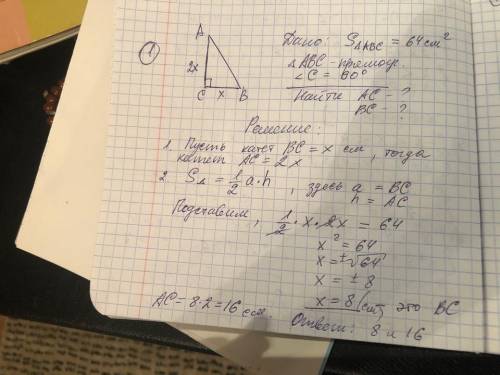 ①
A
2x
C x B
Дано: S△ABC = 64 см²
△ABC - прямоуг.
∠C = 90°
Найти AC - ?
BC - ?
Решение:
1. Пусть катет BC = x см, тогда
катет AC = 2x
2. S△ = 1/2 a·h, здесь a = BC
h = AC
Подставим, 1/2 · x · 2x = 64
x² = 64
x = ±√64
x = ± 8
x = 8 (см) это BC
AC = 8·2 = 16 см.
Ответ: 8 и 16